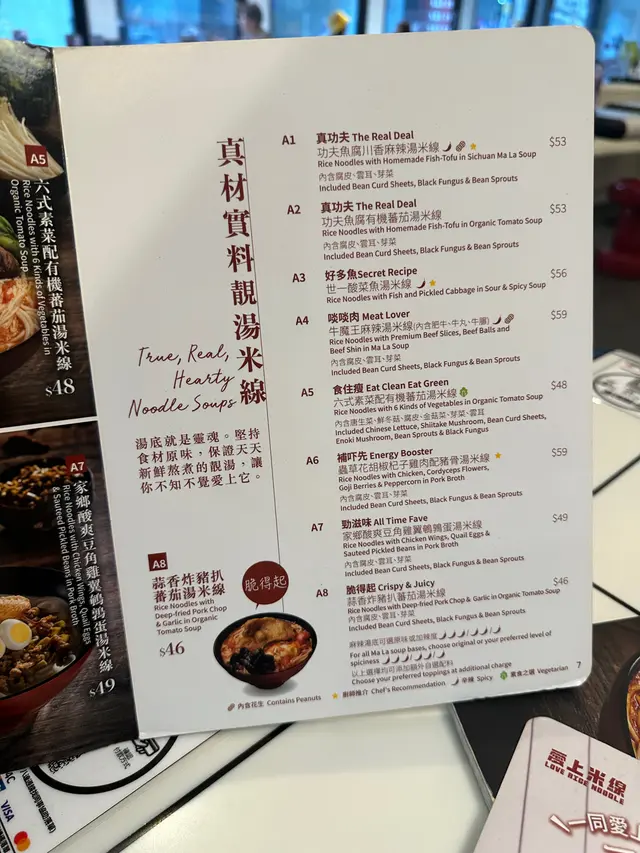 A5
六式素菜配有機蕃茄湯米線
Rice Noodles with 6 Kinds of Vegetables in
Organic Tomato Soup
$48
A7
家鄉酸爽豆角雞翼鵪鶉蛋湯米線
Rice Noodles with Chicken Wings, Quail Eggs
& Sauteed Pickled Beans in Pork Broth
$49
真材實料靚湯米線
True, Real,
Hearty
Noodle Soups
湯底就是靈魂。堅持
食材原味，保證天天
新鮮熬煮的靚湯，讓
你不知不覺愛上它。
A8
蒜香炸豬扒
蕃茄湯米線
Rice Noodles with
Deep-fried Pork Chop
& Garlic in Organic
Tomato Soup
$46
脆得起
A1 真功夫 The Real Deal $53
功夫魚腐川香麻辣湯米線
Rice Noodles with Homemade Fish-Tofu in Sichuan Ma La Soup
內含腐皮、雲耳、芽菜
Included Bean Curd Sheets, Black Fungus & Bean Sprouts
A2 真功夫 The Real Deal $53
功夫魚腐有機蕃茄湯米線
Rice Noodles with Homemade Fish-Tofu in Organic Tomato Soup
內含腐皮、雲耳、芽菜
Included Bean Curd Sheets, Black Fungus & Bean Sprouts
A3 好多魚Secret Recipe $56
世一酸菜魚湯米線
Rice Noodles with Fish and Pickled Cabbage in Sour & Spicy Soup
A4 啖啖肉 Meat Lover $59
牛魔王麻辣湯米線(內含肥牛、牛丸、牛𦟌)
Rice Noodles with Premium Beef Slices, Beef Balls and
Beef Shin in Ma La Soup
內含腐皮、雲耳、芽菜
Included Bean Curd Sheets, Black Fungus & Bean Sprouts
A5 食住瘦 Eat Clean Eat Green $48
六式素菜配有機蕃茄湯米線
Rice Noodles with 6 Kinds of Vegetables in Organic Tomato Soup
內含唐生菜、鮮冬菇、腐皮、金菇菜、芽菜、雲耳
Included Chinese Lettuce, Shiitake Mushroom, Bean Curd Sheets,
Enoki Mushroom, Bean Sprouts & Black Fungus
A6 補吓先 Energy Booster $59
蟲草花胡椒杞子雞肉配豬骨湯米線
Rice Noodles with Chicken, Cordyceps Flowers,
Goji Berries & Peppercorn in Pork Broth
內含腐皮、雲耳、芽菜
Included Bean Curd Sheets, Black Fungus & Bean Sprouts
A7 勁滋味 All Time Fave $49
家鄉酸爽豆角雞翼鵪鶉蛋湯米線
Rice Noodles with Chicken Wings, Quail Eggs &
Sauteed Pickled Beans in Pork Broth
內含腐皮、雲耳、芽菜
Included Bean Curd Sheets, Black Fungus & Bean Sprouts
A8 脆得起 Crispy & Juicy $46
蒜香炸豬扒蕃茄湯米線
Rice Noodles with Deep-fried Pork Chop & Garlic in Organic Tomato Soup
內含腐皮、雲耳、芽菜
Included Bean Curd Sheets, Black Fungus & Bean Sprouts
麻辣湯底可選原味或加辣度
For all Ma La soup bases, choose original or your preferred level of
spiciness
以上選擇均可添加額外自選配料
Choose your preferred toppings at additional charge
內含花生 Contains Peanuts 廚師推介 Chef's Recommendation 辛辣 Spicy 素食之選 Vegetarian 7
VISA
雲上米線
LOVE RICE NOODLE
一同愛上